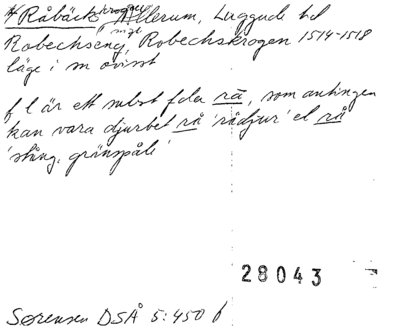 Råbäckskrogen, Allerum, Luggude hd
ängt
Robechseng, Robechskrogen 1514-1518
läge i sn ovisst
f l är ett subst fda rā, som antingen
kan vara djurbet rå 'rådjur' el rå
'stång, gränspåle'
28043
Sørensen DSÅ 5:450 f